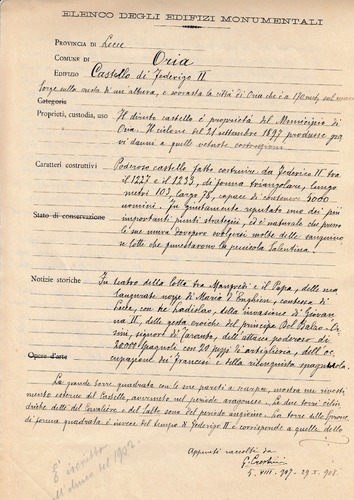 ELENCO DEGLI EDIFIZI MONUMENTALI
PROVINCIA DI Lecce
COMUNE DI Oria
EDIFIZIO Castello di Federigo II
Sorge sulla cresta di un'altura, e sovrasta la città di Oria che è a 170 m. sul mare
Categoria
Proprietà, custodia, uso Il diruto castello è proprietà del Municipio di
Oria. Il ciclone del 21 settembre 1897 produsse gra
vi danni a quelle vetuste costruzioni
Caratteri costruttivi Poderoso castello fatto costruire da Federigo II tra
il 1227 e il 1233, di forma triangolare, lungo
metri 103, largo 76, capace di contenere 3000
uomini. Fu giustamente reputato uno dei più
Stato di conservazione importanti punti strategici, ed è naturale che presso
le sue mura dovessero svolgersi molte delle sanguino
se lotte che funestarono la penisola Salentina.
Notizie storiche Fu teatro della lotta tra Manfredi e il Papa, delle ma
gnate nozze di Maria d'Enghien, contessa di
Lecce, con re Ladislao, della invasione di Giovan
na II, delle gesta eroiche del principe Del Balzo-Or
sini, signor di Taranto, dell'attacco poderoso di
20000 Spagnoli con 20 pezzi d'artiglieria, dell'oc
cupazione dei Francesi e della riconquista spagnuola.
Opere d'arte
La grande torre quadrata con le sue pareti a scarpa, mostra un rivesti
mento esterno del Castello, avvenuto nel periodo aragonese. Le due torri cilin
driche dette del Cavaliere e del Salto sono del periodo angioino. La torre dello Sperone
di forma quadrata è invece del tempo di Federigo II e corrisponde a quelle dello
Appunti raccolti da
5. VIII. 907 - 29. X. 908.
È iscritto
nell'elenco del 1902.